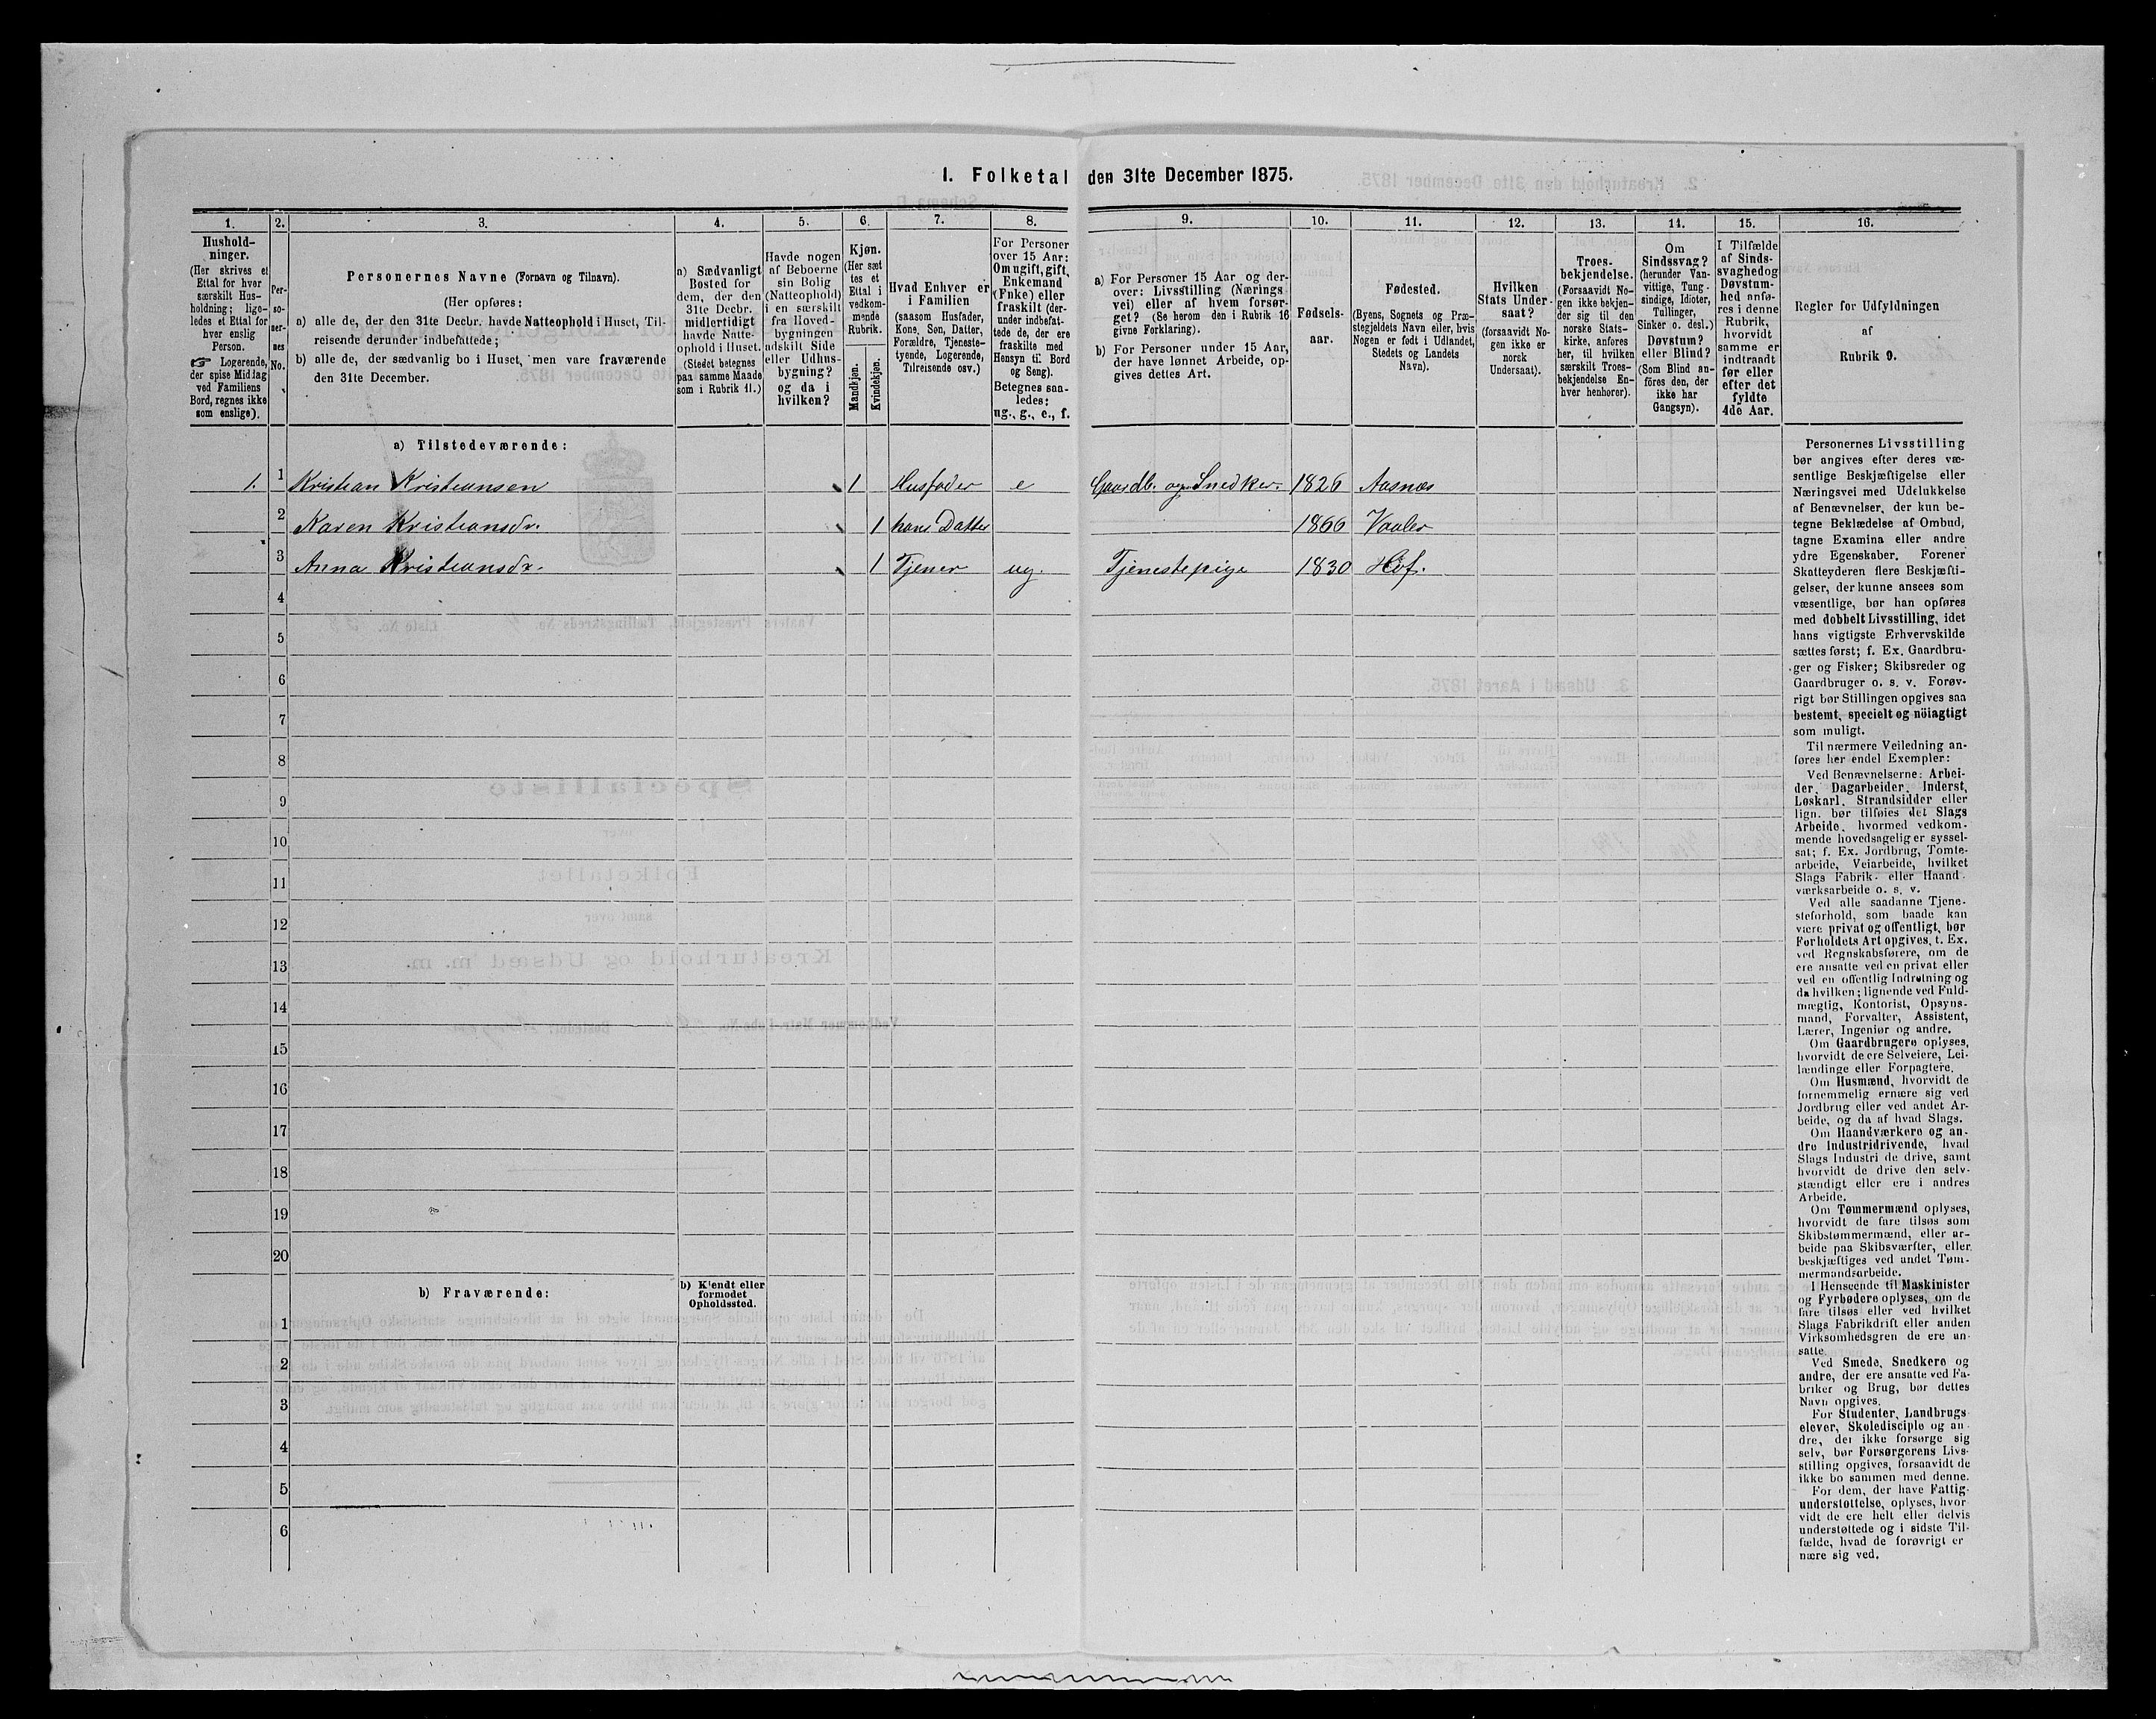 1. Folketal den 31te December 1875.
1. 2. 3. 4. 5. 6. 7. 8. 9. 10. 11. 12. 13. 14. 15. 16.
Hushold-
ninger.
(Her skrives et
Ettal for hver
særskilt Hus-
holdning; lige-
ledes et Ettal for
hver enslig
Person.
☞ Logerende,
der spise Middag
ved Familiens
Bord, regnes ikke
som enslige).
Per-
so-
ner-
nes
No.
Personernes Navne (Fornavn og Tilnavn).
(Her opføres:
a) alle de, der den 31te Decbr. havde Natteophold i Huset, Til-
reisende derunder indbefattede;
b) alle de, der sædvanlig bo i Huset, men vare fraværende
den 31te December.
a) Sædvanligt
Bosted for
dem, der den
31te Decbr.
midlertidigt
havde Natte-
ophold i Huset.
(Stedet betegnes
paa samme Maade
som i Rubrik 11.)
Havde nogen
af Beboerne
sin Bolig
(Natteophold)
i en særskilt
fra Hoved-
bygningen
adskilt Side
eller Udhus-
bygning?
og da i
hvilken?
Kjøn.
(Her sæt
tes et
Ettal i
vedkom-
mende
Rubrik.
Mandkjøn.
Kvindekjøn.
Hvad Enhver er
i Familien
(saasom Husfader,
Kone, Søn, Datter,
Forældre, Tjeneste-
tyende, Logerende,
Tilreisende osv.)
For Personer
over 15 Aar:
Om ugift, gift,
Enkemand
(Enke) eller
fraskilt (der-
under indbefat-
tede de, der ere
fraskilte med
Hensyn til Bord
og Seng).
Betegnes saa-
ledes:
ug., g., e., f.
a) For Personer 15 Aar og der-
over: Livsstilling (Nærings
vei) eller af hvem forsør-
get? (Se herom den i Rubrik 16
givne Forklaring).
b) For Personer under 15 Aar,
der have lønnet Arbeide, op-
gives dettes Art.
Fødsels-
aar.
Fødested.
(Byens, Sognets og Præ-
stegjeldets Navn eller, hvis
Nogen er født i Udlandet,
Stedets og Landets
Navn).
Hvilken
Stats Under-
saat?
(forsaavidt No-
gen ikke er
norsk
Undersaat).
Troes-
bekjendelse.
(Forsaavidt No-
gen ikke bekjen-
der sig til den
norske Stats-
kirke, anføres
her, til hvilken
særskilt Troes-
bekjendelse En-
hver henhører).
Om
Sindssvag?
(herunder Van-
vittige, Tung-
sindige, Idioter,
Tullinger,
Sinker o. desl.)
Døvstum?
eller Blind?
(Som Blind an-
føres den, der
ikke har
Gangsyn).
I Tilfælde
af Sinds-
svaghed og
Døvstum-
hed anfø-
res i denne
Rubrik,
hvorvidt
samme er
indtraadt
før eller
efter det
fyldte
4de Aar.
Regler for Udfyldningen
af
Rubrik 9.
a) Tilstedeværende:
1. 1 Kristian Kristiansen 1 Husfader e Gaardb. og Snedker. 1826 Aasnæs
2 Karen Kristiansdr. 1 hans Datter 1866 Vaaler
3 Anna Kristiansdr. 1 Tjener ug. Tjenestepige 1830 Hof.
4
5
6
7
8
9
10
11
12
13
14
15
16
17
18
19
20
b) Fraværende:
b) Kjendt eller
formodet
Opholdssted.
1
2
3
4
5
6
Personernes Livsstilling
bør angives efter deres væ-
sentlige Beskjæftigelse eller
Næringsvei med Udelukkelse
af Benævnelser, der kun be-
tegne Beklædelse af Ombud,
tagne Examina eller andre
ydre Egenskaber. Forener
Skatteyderen flere Beskjæfti-
gelser, der kunne ansees som
væsentlige, bør han opføres
med dobbelt Livsstilling, idet
hans vigtigste Erhvervskilde
sættes først; f. Ex. Gaardbru-
ger og Fisker; Skibsreder og
Gaardbruger o. s. v. Forøv-
rigt bør Stillingen opgives saa
bestemt, specielt og nøiagtigt
som muligt.
Til nærmere Veiledning an-
føres her endel Exempler:
Ved Benævnelserne: Arbei-
der, Dagarbeider, Inderst,
Løskarl, Strandsidder eller
lign. bør tilføies det Slags
Arbeide, hvormed vedkom-
mende hovedsagelig er syssel-
sat; f. Ex. Jordbrug, Tomte-
arbeide, Veiarbeide, hvilket
Slags Fabrik- eller Haand-
værksarbeide o. s. v.
Ved alle saadanne Tjene-
steforhold, som baade kan
være privat og offentligt, bør
Forholdets Art opgives, t. Ex.
ved Regnskabsførere, om de
ere ansatte ved en privat eller
ved en offentlig Indretning og
da hvilken; lignende ved Fuld-
mægtig, Kontorist, Opsyns-
mand, Forvalter, Assistent,
Lærer, Ingeniør og andre.
Om Gaardbrugere oplyses,
hvorvidt de ere Selveiere, Lei-
lændinge eller Forpagtere.
Om Husmænd, hvorvidt de
fornemmelig ernære sig ved
Jordbrug eller ved andet Ar-
beide, og da af hvad Slags.
Om Haandværkere og an-
dre Industridrivende, hvad
Slags Industri de drive, samt
hvorvidt de drive den selv-
stændigt eller ere i andres
Arbeide.
Om Tømmermænd oplyses,
hvorvidt de fare tilsøs som
Skibstømmermænd, eller ar-
beide paa Skibsværfter, eller
beskjæftiges ved andet Tøm-
mermandsarbeide.
I Henseende til Maskinister
og Fyrbødere oplyses, om de
fare tilsøs eller ved hvilket
Slags Fabrikdrift eller anden
Virksomhedsgren de ere an-
satte.
Ved Smede, Snedkere og
andre, der ere ansatte ved Fa-
briker og Brug, bør dettes
Navn opgives.
For Studenter, Landbrugs-
elever, Skoledisciple og an-
dre, der ikke forsørge sig
selv, bør Forsørgerens Livs-
stilling opgives, forsaavidt de
ikke bo sammen med denne.
For dem, der have Fattig-
understøttelse, oplyses, hvor-
vidt de ere helt eller delvis
understøttede og i sidste Til-
fælde, hvad de forøvrigt er
nære sig ved.